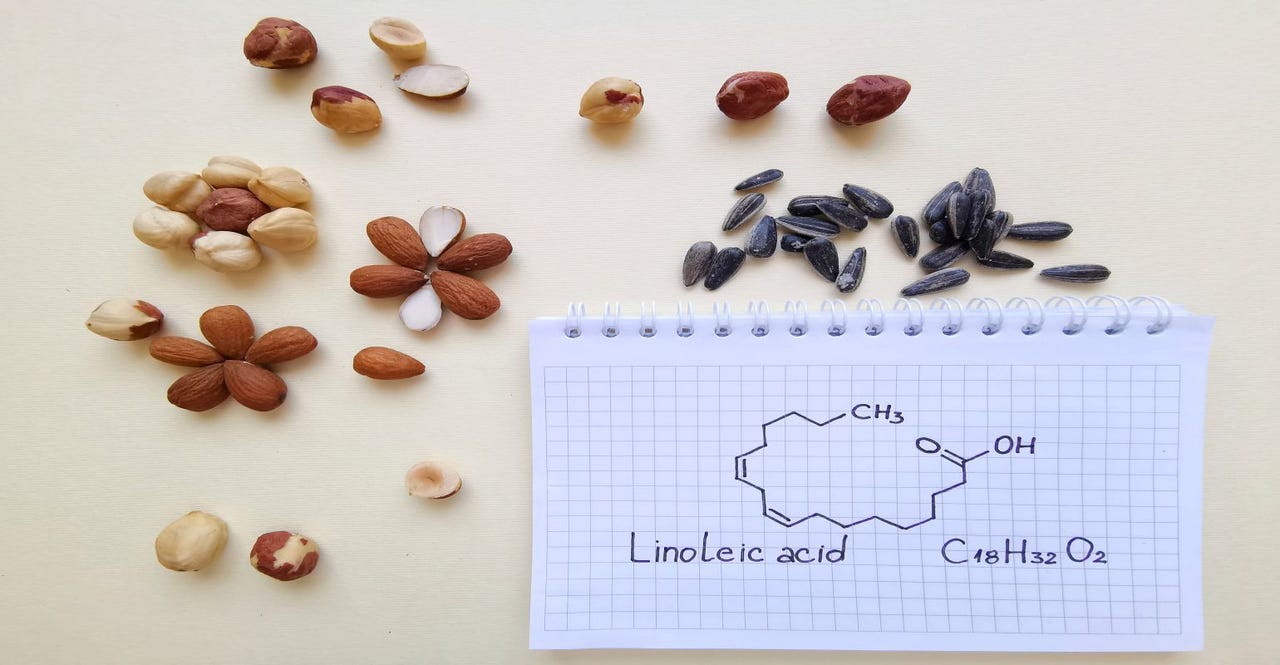 CH₃
O OH
Linoleic acid C₁₈H₃₂O₂